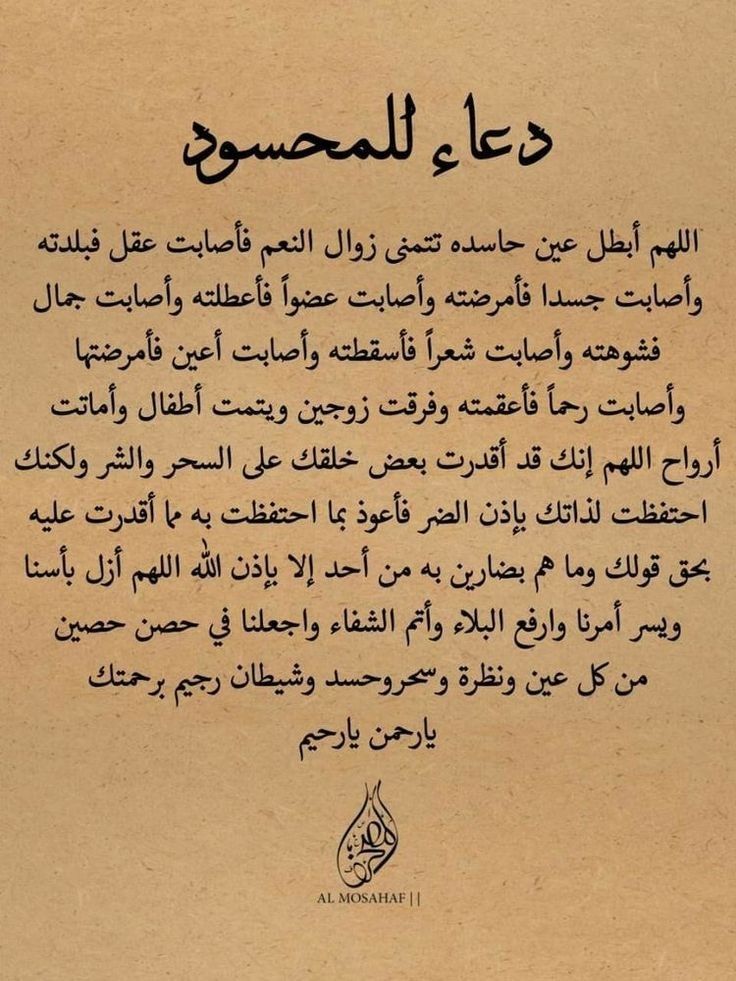 دعاء للمحسود
اللهم أبطل عين حاسده تتمنى زوال النعم فأصابت عقل فبلدته
وأصابت جسدا فأمرضته وأصابت عضواً فأعطلته وأصابت جمال
فشوهته وأصابت شعراً فأسقطته وأصابت أعين فأمرضتها
وأصابت رحماً فأعقمته وفرقت زوجين ويتمت أطفال وأماتت
أرواح اللهم إنك قد أقدرت بعض خلقك على السحر والشر ولكنك
احتفظت لذاتك بإذن الضر فأعوذ بما احتفظت به مما أقدرت عليه
بحق قولك وما هم بضارين به من أحد إلا بإذن الله اللهم أزل بأسنا
ويسر أمرنا وارفع البلاء وأتم الشفاء واجعلنا في حصن حصين
من كل عين ونظرة وسحروحسد وشيطان رجيم برحمتك
يارحمن يارحيم
AL MOSAHAF ||